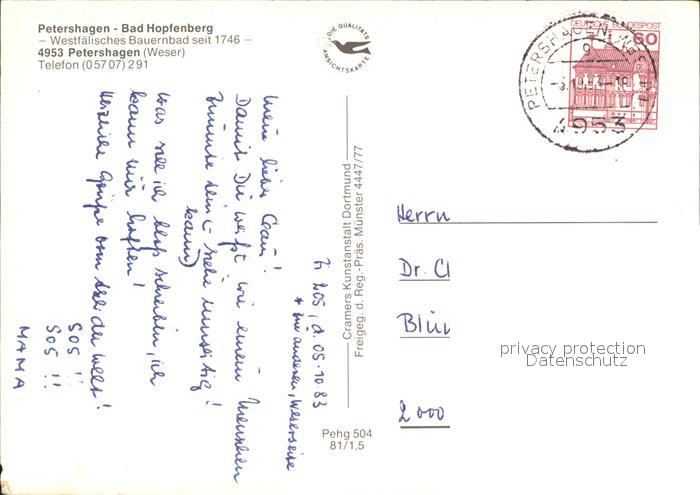 Petershagen - Bad Hopfenberg
– Westfälisches Bauernbad seit 1746 –
4953 Petershagen (Weser)
Telefon (05707) 291
DIE QUALITÄTS
ANSICHTSKARTE
DEUTSCHE BUNDESPOST
60
PETERSHAGEN
4953
Zi 205, d. 05.10.83
* zur anderen, Weserseite
Mein lieber
Damit Du weißt, wie einem Menschen
zumute sein
kann)
siehe umseitig!
was soll ich bloß schreiben, ich
kann nur hoffen!
Herzliche Grüße vom der Welt!
SOS !!
SOS !!
MAMA
Cramers Kunstanstalt Dortmund
Freigeg. d. Reg.-Präs. Münster 4447/77
Pehg 504
81/1,5
Herrn
Dr. Cl
2000
privacy protection
Datenschutz